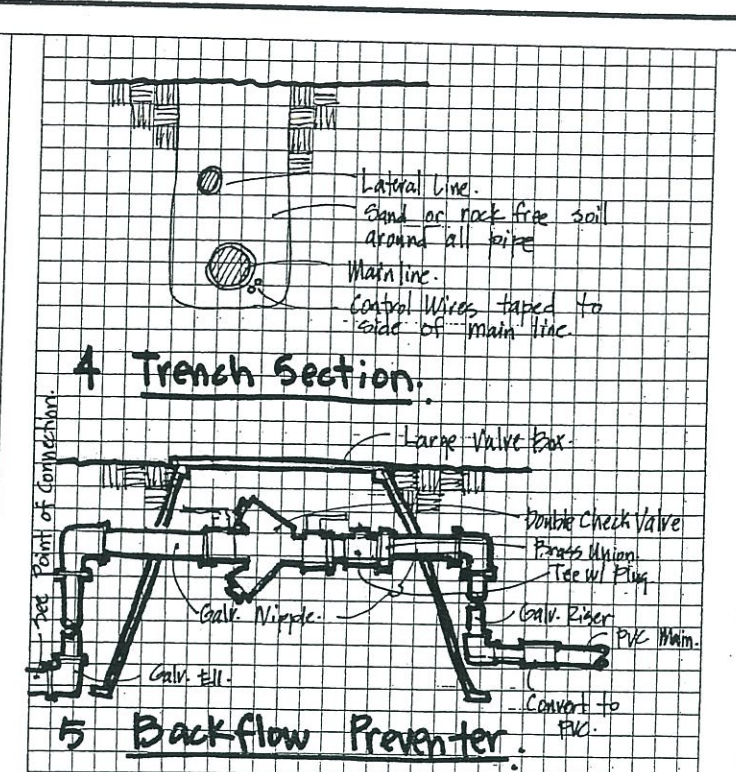 Lateral Line.
Sand or rock free soil
around all pipe
Mainline.
Control Wires taped to
side of main line.
4 Trench Section.
Large Valve Box.
See Point of Connection.
Double Check Valve
Brass Union
Tee w/ Plug
Galv. Nipple.
Galv. Riser
PVC Main.
Galv. Ell.
Convert to
PVC.
5 Backflow Preventer.